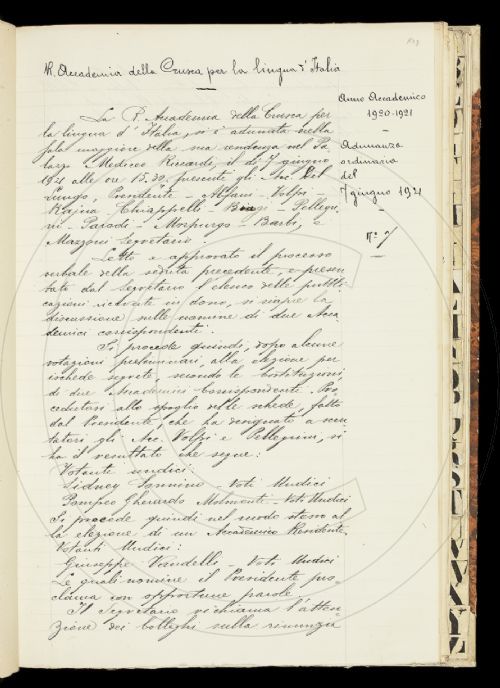 R. Accademia della Crusca per la lingua d'Italia
Anno Accademico
1920-1921
Adunanza
ordinaria
del
7 giugno 1921
Nº 7
La R. Accademia della Crusca per
la lingua d'Italia, si è adunata nella
sala maggiore della sua residenza nel Pa
lazzo Mediceo Riccardi, il dì 7 giugno
1921 alle ore 15.30, presente gli Acc. Del
Lungo, Presidente - Alfani - Volpi -
Rajna - Chiappelli - Biagi - Pellegri
ni - Parodi - Morpurgo - Barbi, e
Mazzoni Segretario.
Letto e approvato il processo
verbale della seduta precedente, e presen
tato dal Segretario l'elenco delle pubbli
cazioni ricevute in dono, si riapre la
discussione sulle nomine di due Acca
demici corrispondenti.
Si procede quindi, dopo alcune
votazioni preliminari, alla elezione per
ischede segrete, secondo le Costituzioni,
di due Accademici Corrispondenti. Pro
cedutosi allo spoglio delle schede, fatto
dal Presidente, che ha designato a scru
tatori gli Acc. Volpi e Pellegrini, si
ha il resultato che segue:
Votanti undici:
Sidney Sonnino - Voti Undici
Pompeo Gherardo Molmenti - Voti Undici
Si procede quindi nel modo stesso al
la elezione di un Accademico Residente.
Votanti Undici:
Giuseppe Vandelli - Voti Undici
Le quali nomine il Presidente pro-
clama con opportune parole.
Il Segretario richiama l'atten
zione dei Colleghi sulla rinunzia